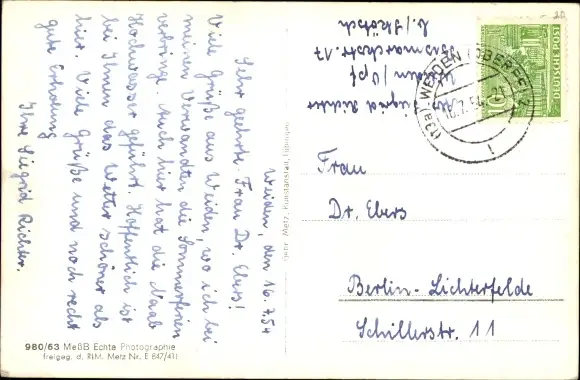 Weiden, den 16.7.54
Sehr geehrte Frau Dr. Ebers!
Viele Grüße aus Weiden, wo ich bei
meinen Verwandten die Sommerferien
verbringe. Auch hier hat die Naab
Hochwasser geführt. Hoffentlich ist
bei Ihnen das Wetter schöner als
hier. Viele Grüße und noch recht
gute Erholung
Ihre Siegrid Richter.
980/63 MeßB Echte Photographie
(freigeg. d. RLM. Metz Nr. E 847/41)
Gebr. Metz, Kunstanstalt, Tübingen
Abs. Siegrid Richter
Weiden / Opf
Bismarckstr. 17
b./
DEUTSCHE POST
10
(13a) WEIDEN (OBERPF) 2
16.7.54
Frau
Dr. Ebers
Berlin-Lichterfelde
Schillerstr. 11